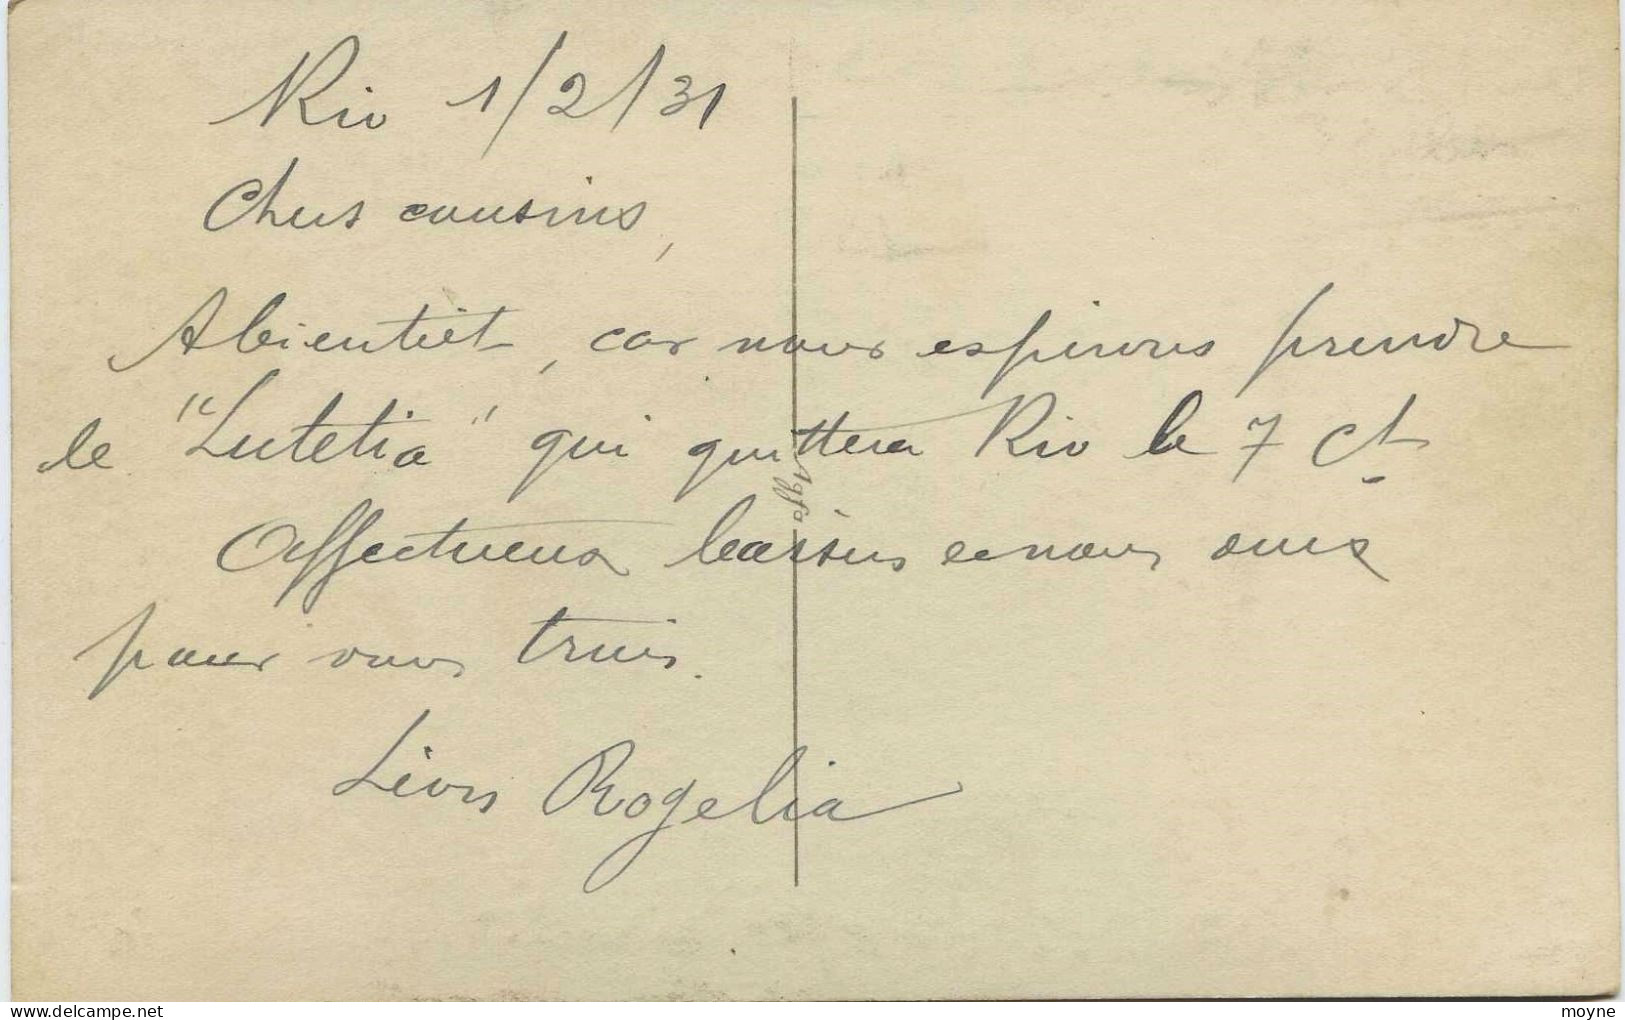 Rio 1/2/31
Chers cousins,
A bientôt, car nous espérons prendre
le "Lutetia" qui quittera Rio le 7 Ct
Affectueux baisers de nous deux
pour vous trois.
Léon Rogelia
Agfa
delcampe.net
moyne